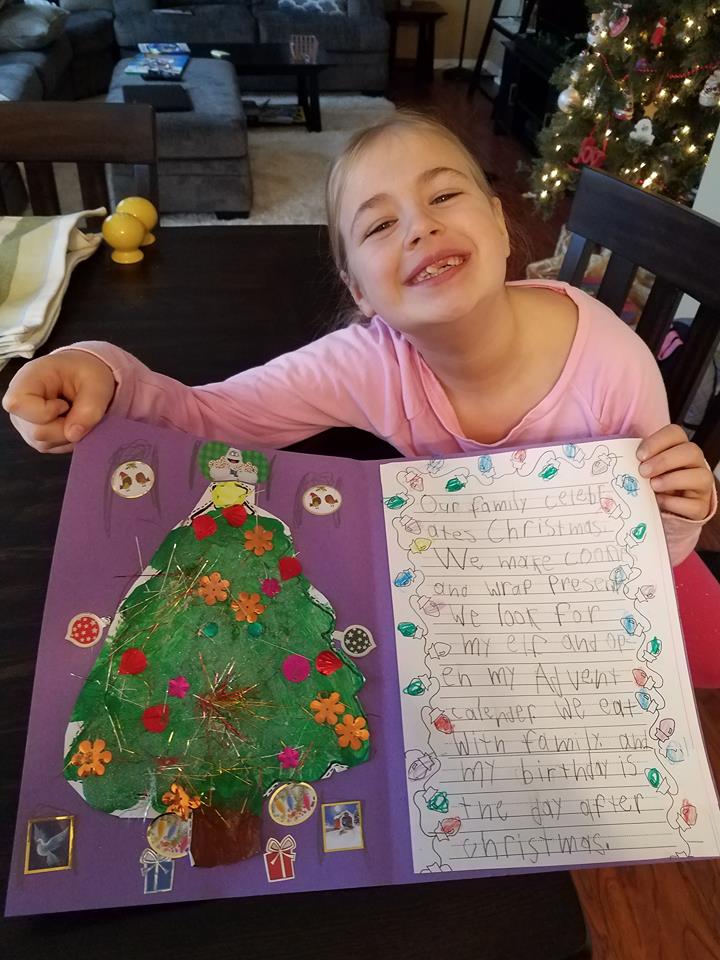 Our family celebr
ates Christmas.
We make cooki
and wrap presen
We look for
my elf and op-
en my Advent
calender We eat
With family and
my birthday is
the day after
christmas.